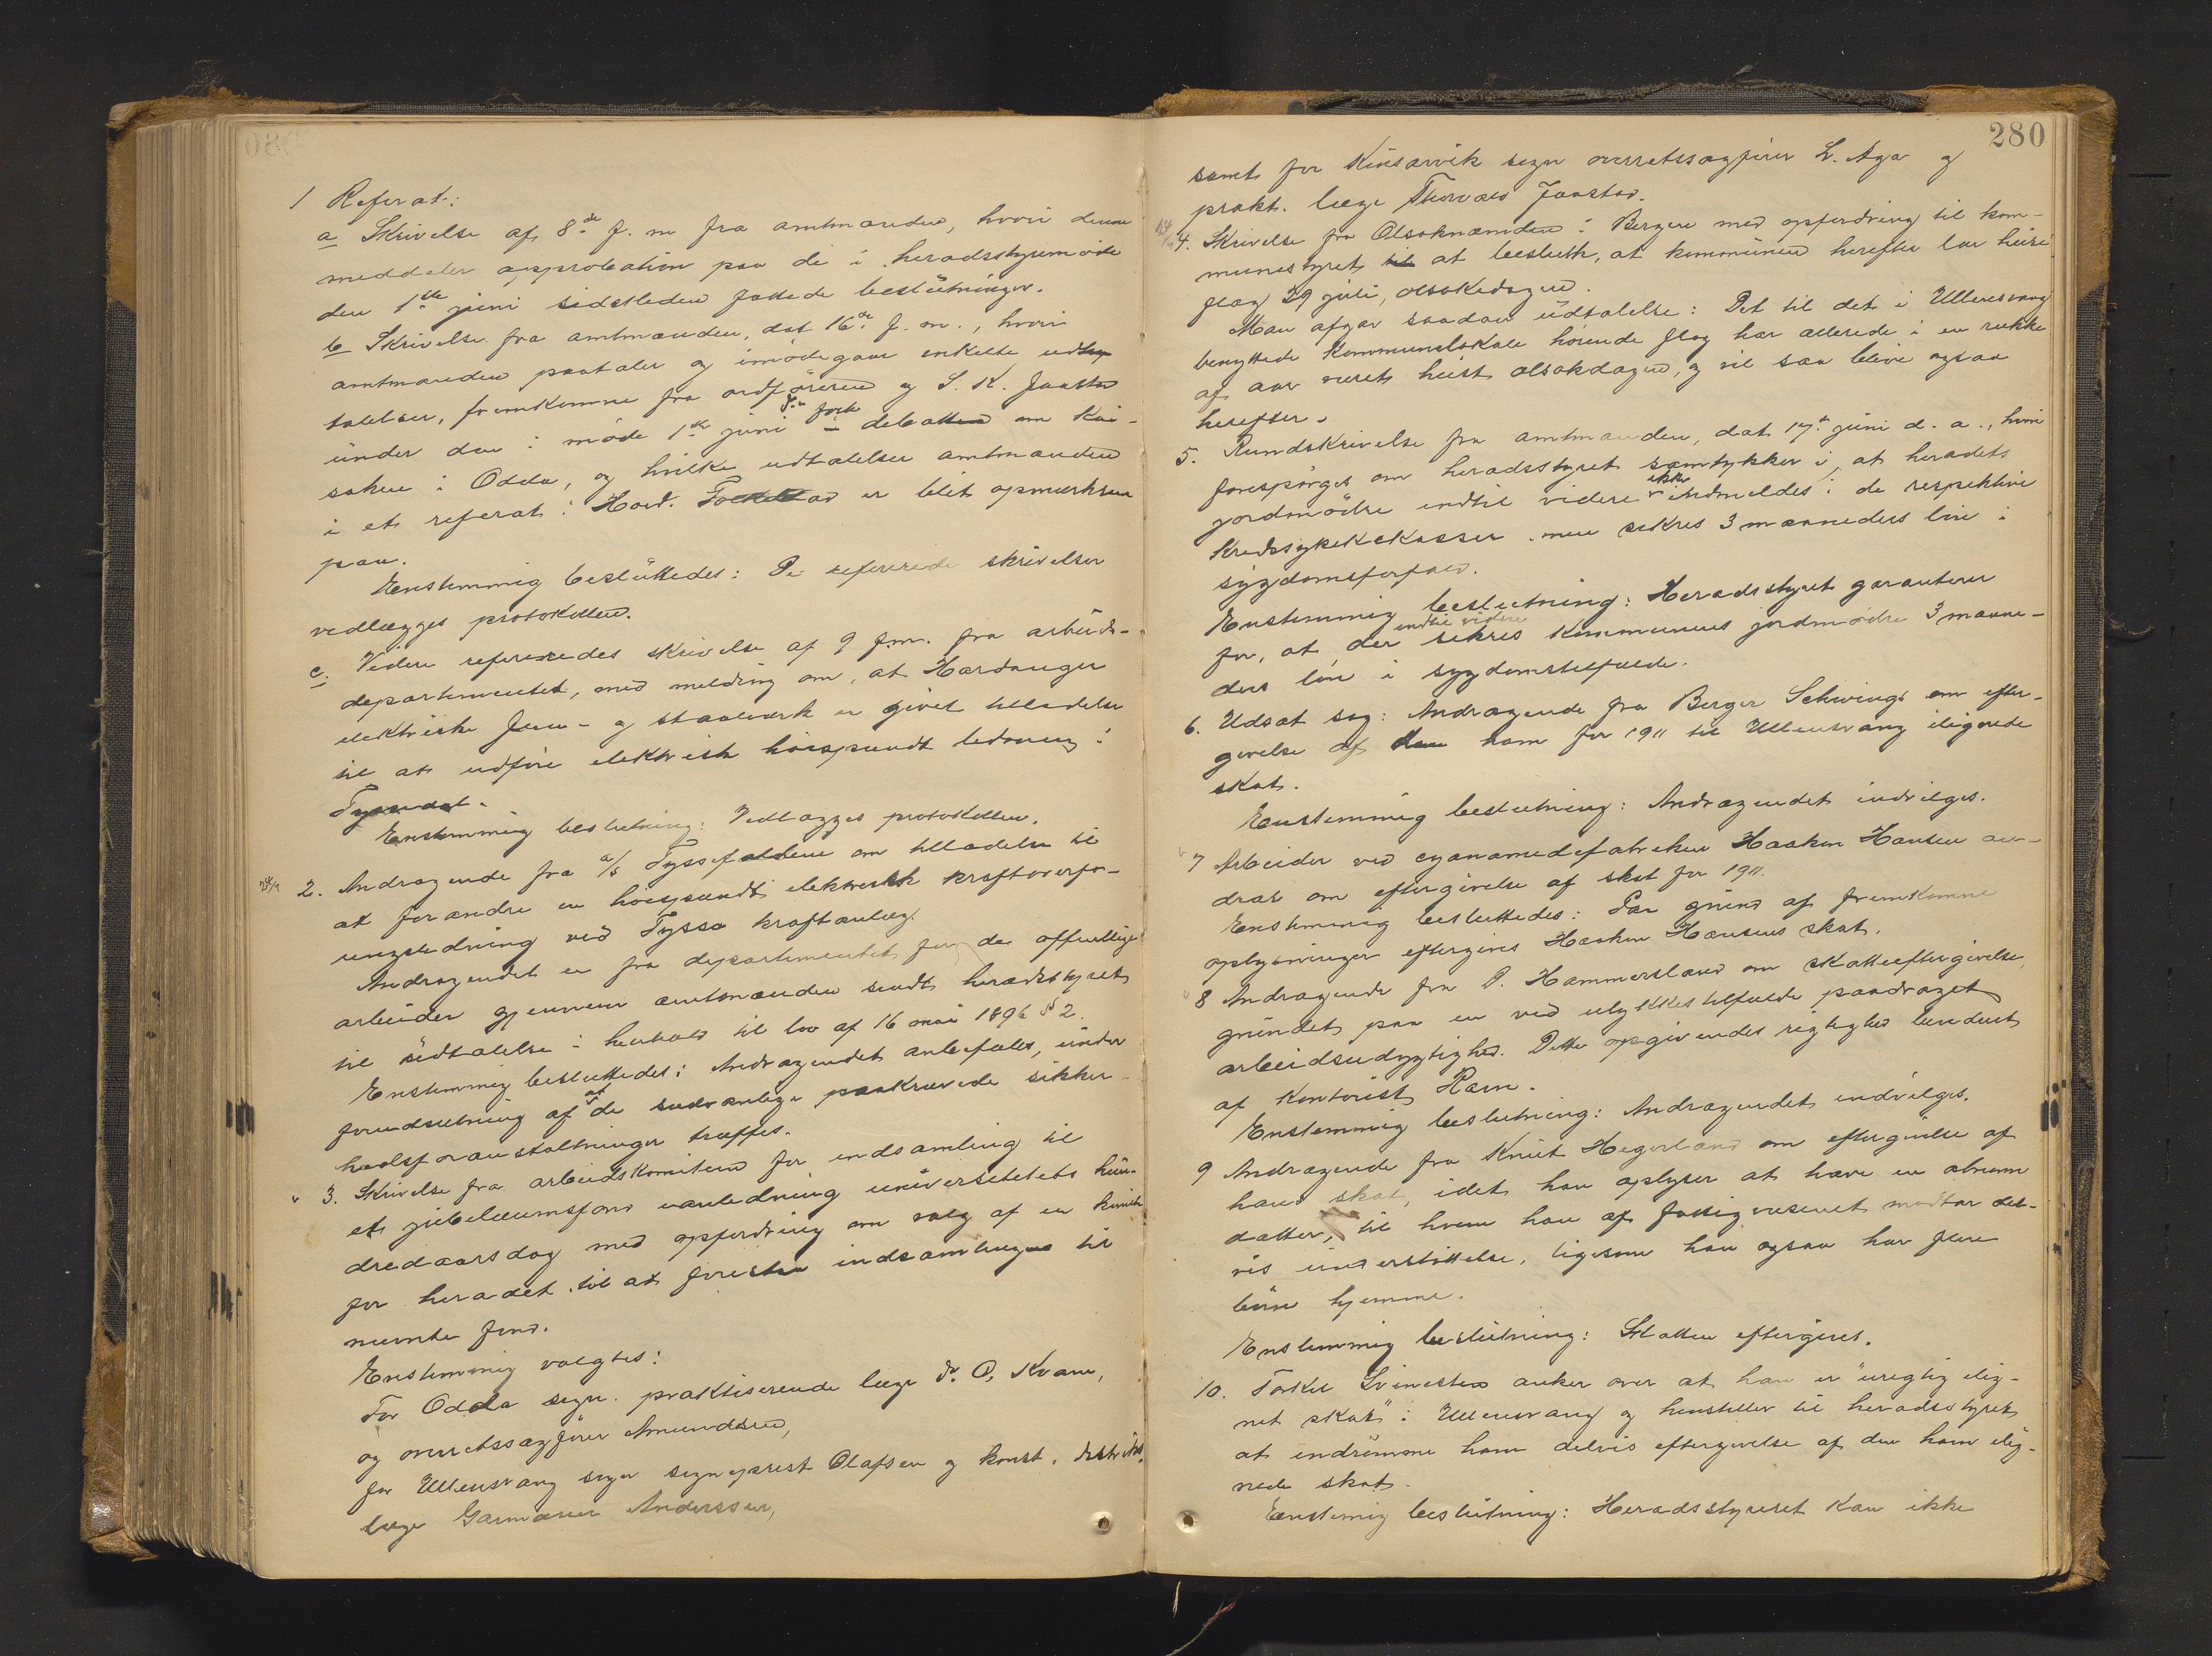 1 Referat:
a Skrivelse af 8de f. m fra amtmanden, hvori denne
meddeler approbation paa de i heradsstyremøde
den 1ste juni sidstleden fattede beslutninger.
b Skrivelse fra amtmanden, dat 16de f. m., hvori
amtmanden paataler og imødegaar enkelte udta-
talelser, fremkomne fra ordføreren og S. K. Jaastad
under den i møde 1ste juni førte debatten om kai-
saken i Odda, og hvilke udtalelser amtmanden
i et referat i Hard. Folkeblad er blit opmerksom
paa.
Enstemmig besluttedes: De refererede skrivelser
vedlægges protokollen.
c. Videre refereredes skrivelse af 9 f.m. fra arbeids-
departementet, med melding om, at Hardanger
elektriske Jern- og staalverk er givet tilladelse
til at udføre elektrisk høispændt ledning i
Tyssedal.
Enstemmig beslutning: Vedlægges protokollen.
2. Andragende fra a/s Tyssefaldene om tilladelse til
at forandre en høispændt elektrisk kraftoverfø-
ringsledning ved Tysso kraftanlæg.
Andragendet er fra departementet for de offentlige
arbeider gjennem amtmanden sendt heradsstyret
til udtalelse i henhold til lov af 16 mai 1896 § 2.
Enstemmig besluttedes: Andragendet anbefales, under
forudsætning af at de sedvanlige paakrævede sikker-
hedsforanstaltninger træffes.
3. Skrivelse fra arbeidskomiteen for indsamling til
et jubelæumsfond i anledning universitetets hun-
dredaarsdag med opfordring om valg af en komite
for heradet til at forestaa indsamlingen til
nævnte fond.
Enstemmig valgtes:
For Odda sogn. praktiserende læge dr. O. Kvam,
og overretssagfører Amundsen,
for Ullensvang sogn sogneprest Olafsen og konst. distrikts-
læge Garmann Anderssen,
280
samt for Kinsarvik sogn overretssagfører L. Aga og
prakt. læge Thorvald Jaastad.
4. Skrivelse fra Olsoknemnden i Bergen med opfordring til kom-
munestyret til at beslutte, at kommunen herefter lar heise
flag 29 juli, olsokdagen.
Man afgav saadan udtalelse: Det til det i Ullensvang
benyttede kommunelokale hørende flag har allerede i en række
af aar været heist olsokdagen, og vil saa blive ogsaa
herefter.
5. Rundskrivelse fra amtmanden, dat 17de juni d. a., hvori
forespørges om heradsstyret samtykker i, at heradets
jordmødre indtil videre ikke indmeldes i de respektive
kredssykekasser, men sikres 3 maaneders løn i
sygdomsforfald.
Enstemmig beslutning: Heradsstyret garanterer
for, at der indtil videre sikres kommunens jordmødre 3 maane-
ders løn i sygdomstilfælde.
6. Udsat sag: Andragende fra Berger Schwings om efter-
givelse af den ham for 1911 til Ullensvang ilignede
skat.
Enstemmig beslutning: Andragendet indvilges.
7 Arbeider ved cyanamidfabriken Haakon Hansen an-
drar om eftergivelse af skat for 1911.
Enstemmig besluttedes: Paa grund af fremkomne
oplysninger eftergives Haakon Hansens skat.
8 Andragende fra P. Hammersland om skatteeftergivelse,
grundet paa en ved ulykkestilfælde paadraget
arbeidsudygtighed. Dette opgivendes rigtighed bevidnet
af kontorist Ravn.
Enstemmig beslutning: Andragendet indvilges.
9 Andragende fra Knut Hegerland om eftergivelse af
hans skat, idet han oplyser at have en abnorm
datter, til hvem han af fattigvæsenet modtar del-
vis understøttelse, ligesom han ogsaa har flere
børn hjemme.
Enstemmig beslutning: Skatten eftergives.
10. Torkel Svinestø anker over at han er "urigtig ilig-
net skat" i Ullensvang og henstiller til heradsstyret
at indrømme ham delvis eftergivelse af den ham ilig-
nede skat.
Enstemmig beslutning: Heradsstyret kan ikke